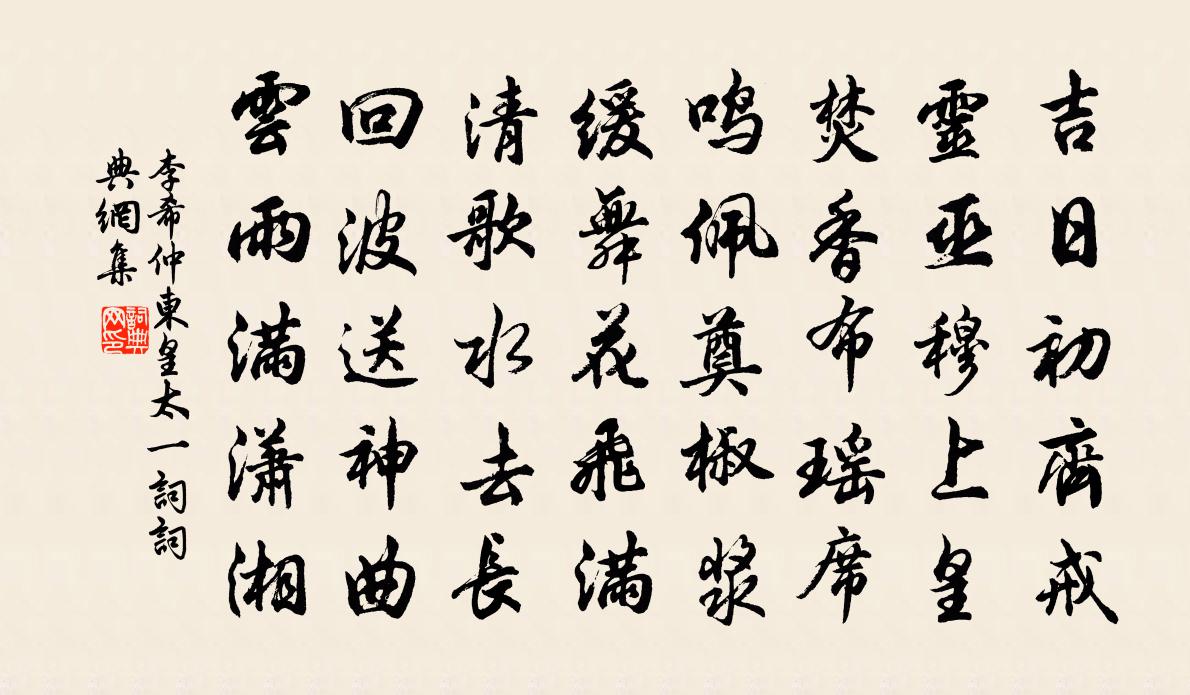 吉日初齊戒
靈巫穆上皇
焚香布瑤席
鳴佩奠椒漿
緩舞花飛滿
清歌水去長
回波送神曲
雲雨滿瀟湘
李希仲東皇太一詞詞
典網集
詞典
网印